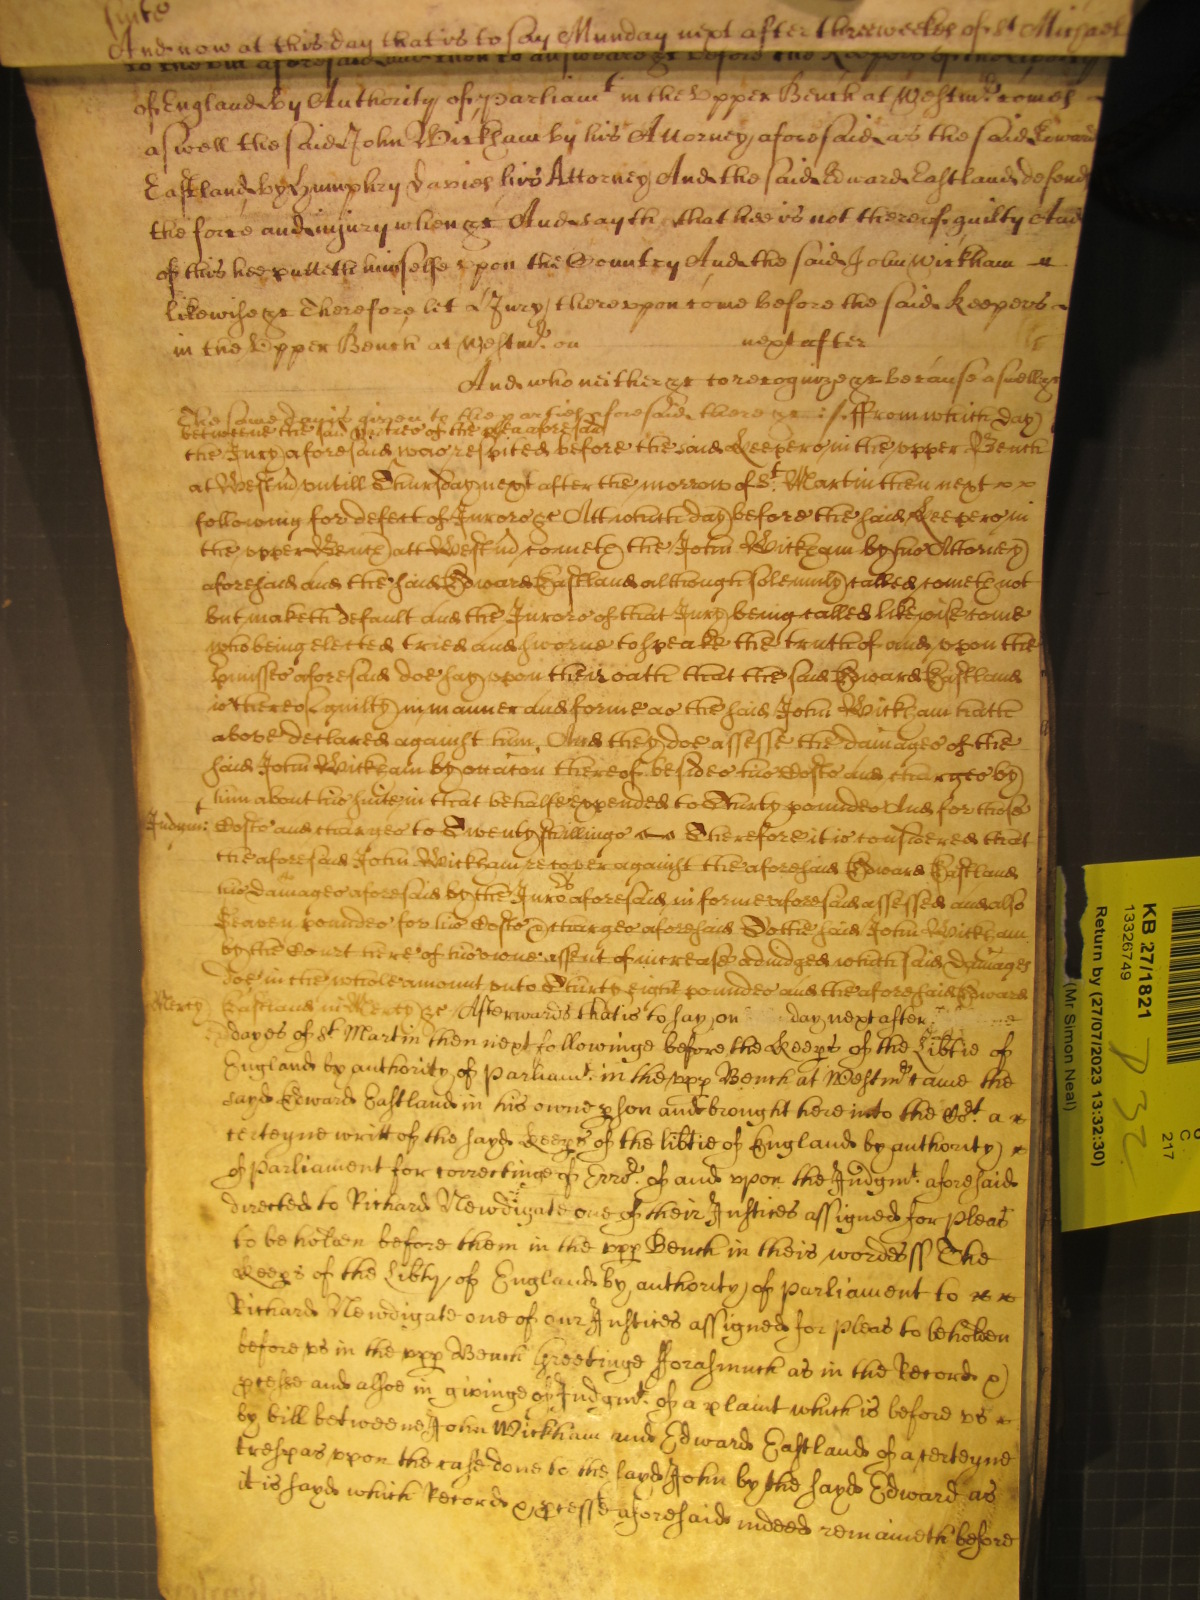 suite
And now at this day that is to say Munday next after three weekes of St Michael
of England by Authority of Parliamt in the Upper Bench at Westmr comes
aswell the said John Wickham by his Attorney aforesaid as the said Edward
Eastland by Humphry Davies his Attorney And the said Edward Eastland defends
the force and injury when &c And sayth that hee is not thereof guilty And
of this hee putteth himselfe vpon the Country And the said John Wickham
likewise &c Therefore let a Jury thereupon come before the said Keepers
in the Vpper Bench at Westmr on next after
And who neither &c to recognize &c because aswell &c
The same day is given to the parties aforesaid there &c ffrom which day
betweene the said parties of the plea aforesaid
the Jury aforesaid was respited before the said Keepers in the upper Bench
at Westmr untill Thursday next after the morrow of St Martin then next
following for defect of Jurors &c Att which day before the said Keepers in
the upper Bench att Westmr cometh the John Wickham by his Attorney
aforesaid and the said Edward Eastland although solemnly called cometh not
but maketh default and the Jurors of that Jury being called likewise come
who being elected tried and sworne to speake the truth of and upon the
premisses aforesaid doe say upon their oath that the said Edward Eastland
is thereof guilty in manner and forme as the said John Wickham hath
above declared against him And they doe assesse the damages of the
said John Wickham by occasion thereof besides his Costs and charges by
him about his suite in that behalfe expended to Thirty poundes And for those
Judgmt: Costs and charges to Twenty shillings Therefore it is considered that
the aforesaid John Wickham recover against the aforesaid Edward Eastland
his damages aforesaid by the Jurors aforesaid in forme aforesaid assessed and also
Seaven poundes for his Costs & charges aforesaid To the said John Wickham
by the Court here of his owne assent of increase adiudged which said Damages
doe in the whole amount unto Thirty eight poundes and the aforesaid Edward
Mercy Eastland in Mercy &c Afterwards that is to say on day next after
dayes of St Martin then next followinge before the Keeps of the Libtie of
England by authority of Parliamt. in the vpp Bench at Westmr came the
sayd Edward Eastland in his owne pson and brought here into the Cort a
certeyne writt of the sayd Keeps of the libtie of England by authority
of Parliament for correctinge of Errors of and vpon the Judgmt. aforesaid
directed to Richard Newdigate one of their Justices assigned for Pleas
to be holden before them in the vpp Bench in theis wordes ss The
Keeps of the Libty of England by authority of Parliament to
Richard Newdigate one of our Justices assigned for Pleas to be holden
before vs in the vpp Bench Greetinge Forasmuch as in the Record &
pcesse and alsoe in givinge of Judgmt. of a plaint which is before vs
by bill betweene John Wickham and Edward Eastland of a certeyne
trespas vpon the case done to the sayd John by the sayd Edward as
it is sayd which Record & pcesse aforesaid indeed remaineth before
KB 27/1821
13326749
Return by (27/07/2023 13:32:30)
(Mr Simon Neal)
C
217